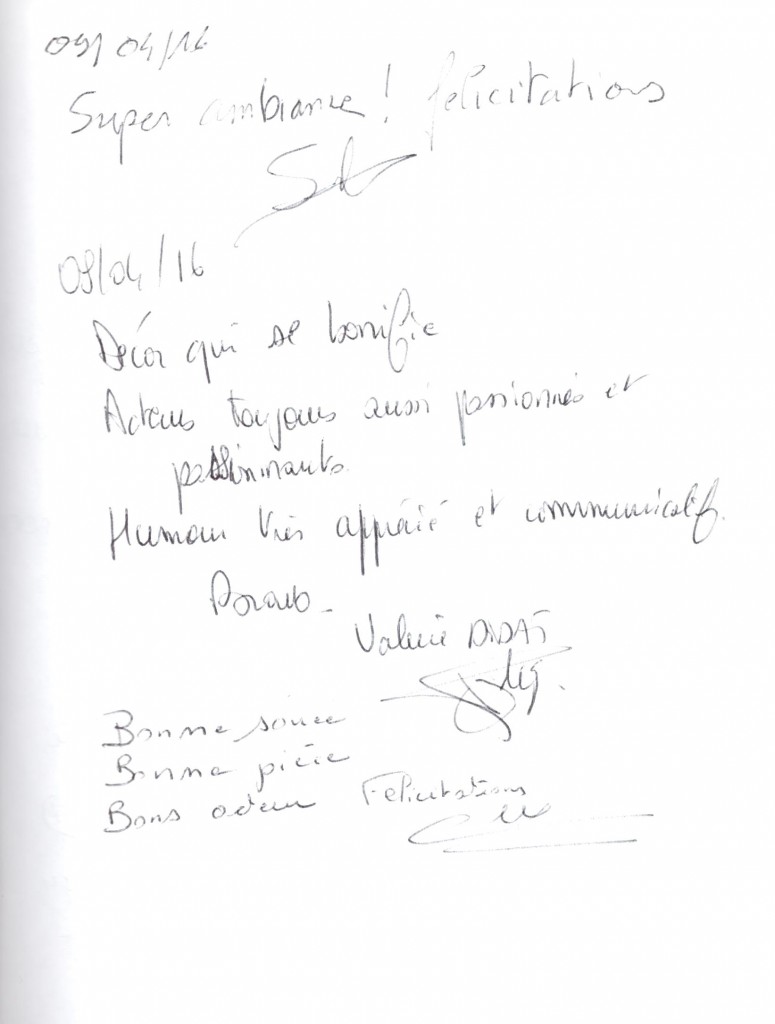 09/04/16
Super ambiance ! félicitations
09/04/16
Décor qui se bonifie
Acteurs toujours aussi passionnés et
passionnants.
Humour très apprécié et communicatif.
Bravo -
Valérie
Bonne soirée
Bonne pièce
Bons acteur Félicitations